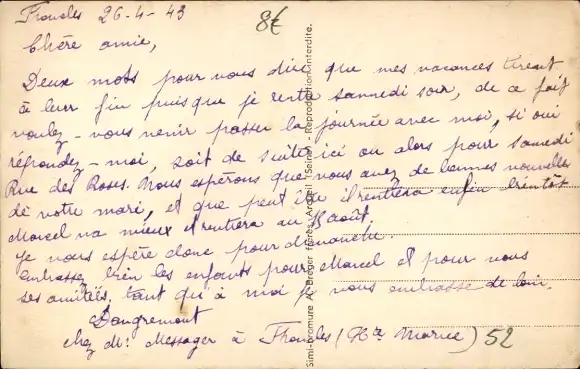 Froncles 26-4-43
8€
Chère amie,
Deux mots pour vous dire que mes vacances tirent
à leur fin puisque je rentre samedi soir, de ce fait
voulez-vous venir passer la journée avec moi, si oui
répondez-moi, soit de suite ici ou alors pour samedi
Rue des Roses. Nous espérons que vous avez de bonnes nouvelles
de votre mari, et que peut être il rentrera enfin bientôt
Marcel va mieux il rentrera au août.
Je vous espère donc pour dimanche.
embrassez bien les enfants pour Marcel et pour vous
ses amitiés, tant qu'à moi je vous embrasse de loin.
Dangremont
chez Mr Messager à Froncles (Hte Marne) 52
Simi-bromure A. Breger frères, Arcueil (Seine) - Reproduction interdite.